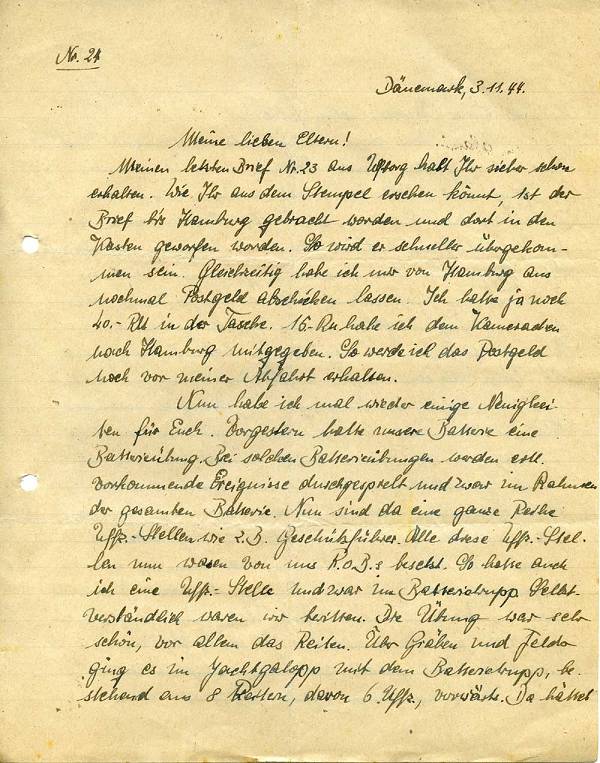 Nr. 24
Dänemark, 3.11.44.
Meine lieben Eltern!
Meinen letzten Brief Nr. 23 aus habt Ihr sicher schon
erhalten. Wie Ihr aus dem Stempel ersehen könnt, ist der
Brief bis Hamburg gebracht worden und dort in den
Kasten geworfen worden. So wird er schneller übergekom-
men sein. Gleichzeitig habe ich mir von Hamburg aus
nochmal Postgeld abschicken lassen. Ich hatte ja noch
40,- RM in der Tasche. 15,- habe ich dem Kameraden
nach Hamburg mitgegeben. So werde ich das Postgeld
noch vor meiner Abfahrt erhalten.
Nun habe ich mal wieder einige Neuigkei-
ten für Euch. Vorgestern hatte unsere Batterie eine
Batterieübung. Bei solchen Batterieübungen werden evtl.
vorkommende Ereignisse durchgespielt und zwar im Rahmen
der gesamten Batterie. Nun sind da eine ganze Reihe
Uffz.-Stellen wie z.B. Geschützführer. Alle diese Uffz.-Stel-
len nun waren von uns R.O.B.s besetzt. So hatte auch
ich eine Uffz.-Stelle und zwar im Batterietrupp. Selbst-
verständlich waren wir beritten. Die Übung war sehr
schön, vor allem das Reiten. Über Gräben und Felder
ging es im Jachtgalopp mit dem Batterietrupp, be-
stehend aus 8 Reitern, davon 6 Uffz., vorwärts. Da hättet